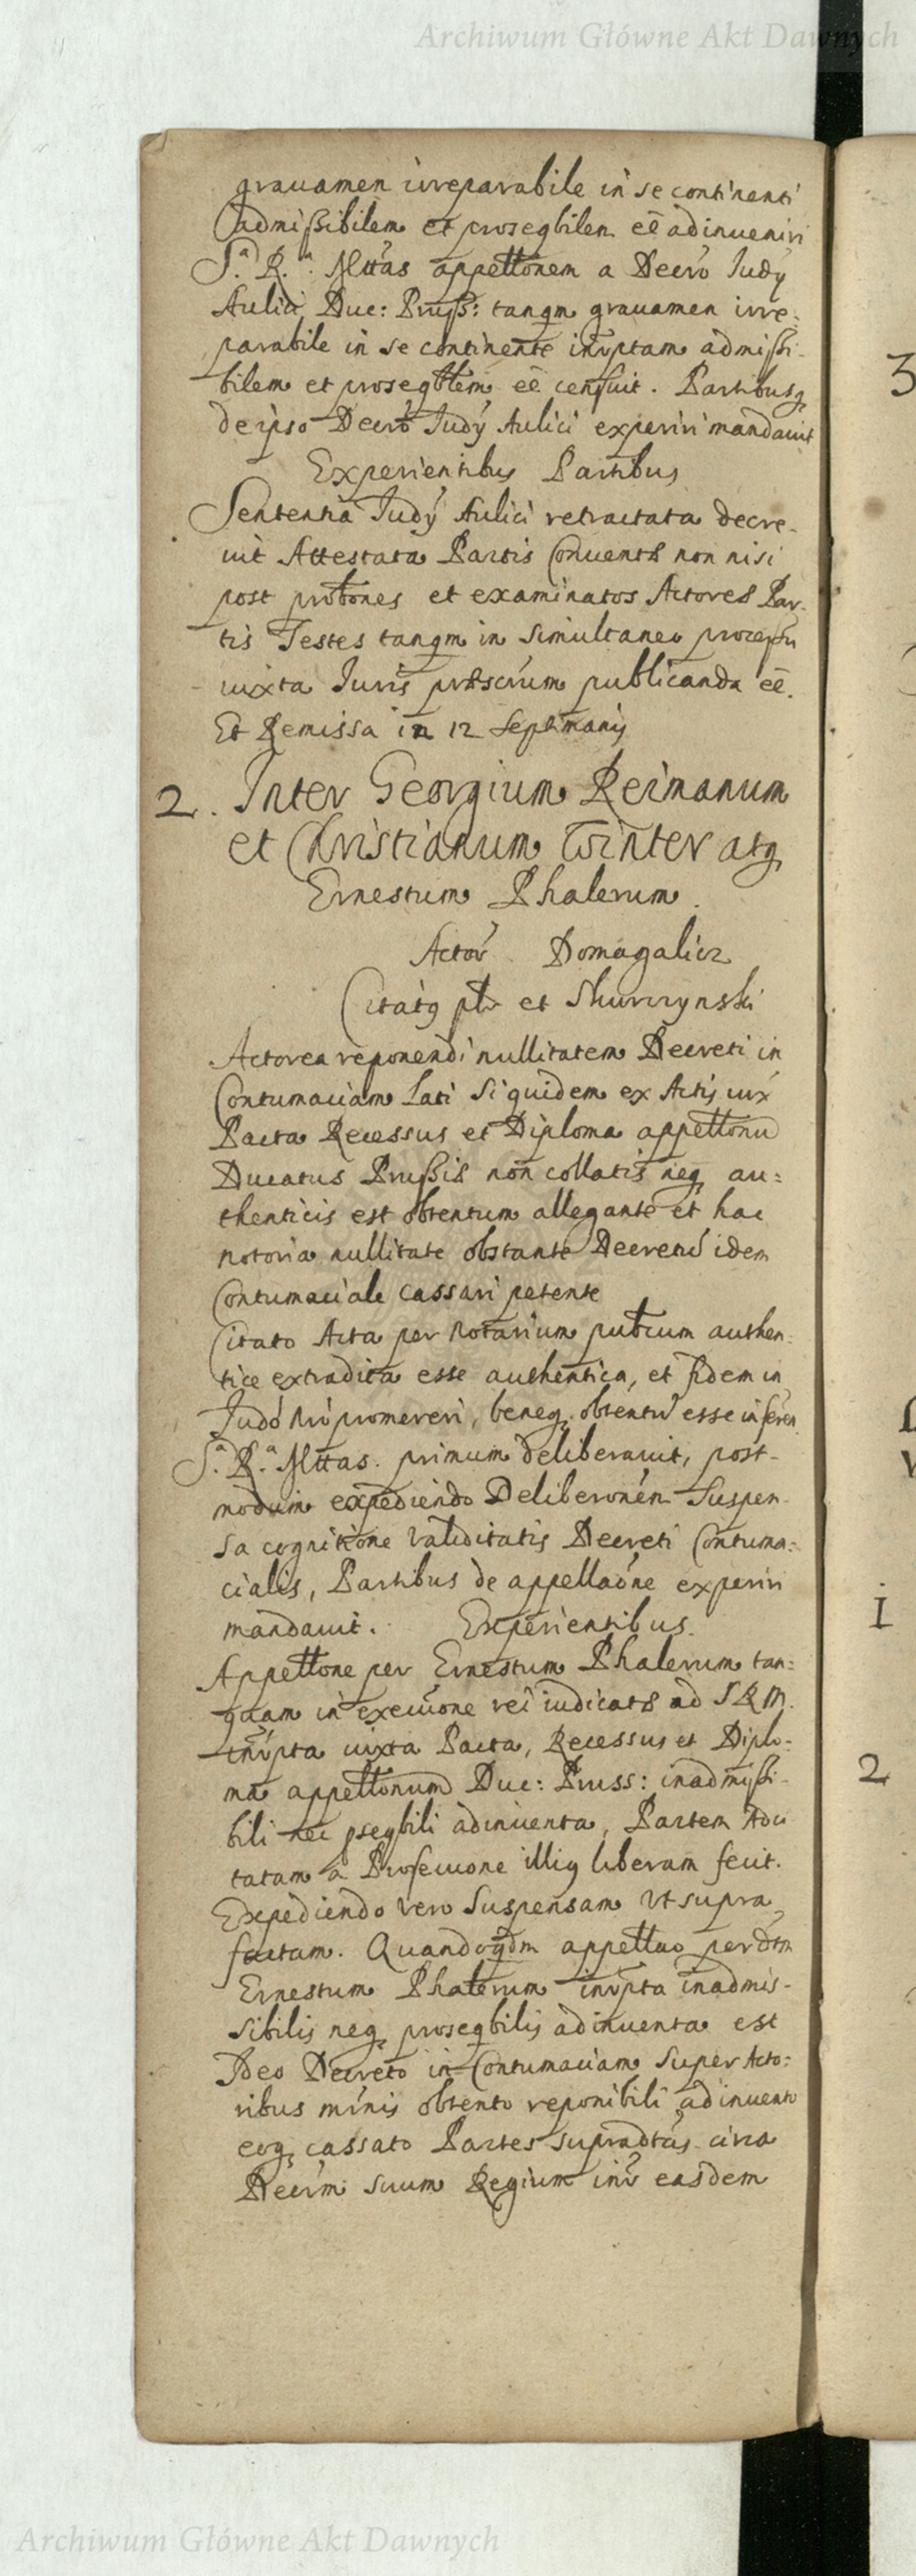 Archiwum Główne Akt Dawnych
grauamen irreparabile in se continenti
admißibilem et proseqbilem eē adinueniri
S.ª R.ª Mttas appettonem a Decro Judÿ
Aulici Duc: Pruß: tanqm grauamen irre:
parabile in se continente inrptam admißi-
bilem et proseqbtem eē censuit. Partibusq
de ipso Decro Judÿ Aulici experiri mandauit
Experientibus Partibus
Sententia Judÿ Aulici retractata decre-
uit Attestata Partis Conuentæ non nisi
post probones et examinatos Actoreæ Par-
tis Testes tanqm in simultaneo processu
iuxta Juris præscrum publicanda eē.
Et Remissa in 12 Septimanis
2. Inter Georgium Reimanum
et Christianum Winter atq
Ernestum Phalerum.
Actor Domagalicz
Citatq et Skurczynski
Actorea reponendi nullitatem Decreti in
Contumaciam Lati siquidem ex Actis iux
Pacta Recessus et Diploma appettonu
Ducatus Prußiæ non collatis neq au:
thenticis est obtentum allegante et hac
notoria nullitate obstante Decretu idem
Contumaciale cassari petente
Citato Acta per Notarium pubcum authen:
tice extradita esse authentica, et fidem in
Judo promereri, beneq obtentu esse inferen
S.ª R.ª Mttas primum deliberauit, post-
modum expediendo Deliberonem Suspen-
sa cognitione validitatis Decreti Contuma:
cialis, Partibus de appellaone experiri
mandauit. Experientibus.
Appettone per Ernestum Phalerum tan:
quam in execuone rei iudicatæ ad S R M.
inrpta iuxta Pacta, Recessus et Diplo:
ma appettonum Duc: Pruss: inadmißi-
bili nec pseqbili adinuenta, Partem Aci
tatam a Prosecuone illiq liberam fecit.
Expediendo vero Suspensam Ut supra
factam. Quandoqdm appettao perdtm
Ernestum Phalerum inrpta inadmis-
sibilis neq proseqbilis adinuenta est
Ideo Decreto in Contumaciam super Acto:
ribus minis obtento reponibili adinuento
eoq cassato Partes supradtas circa
Decrm suum Regium inr easdem
3
1
2
Archiwum Główne Akt Dawnych